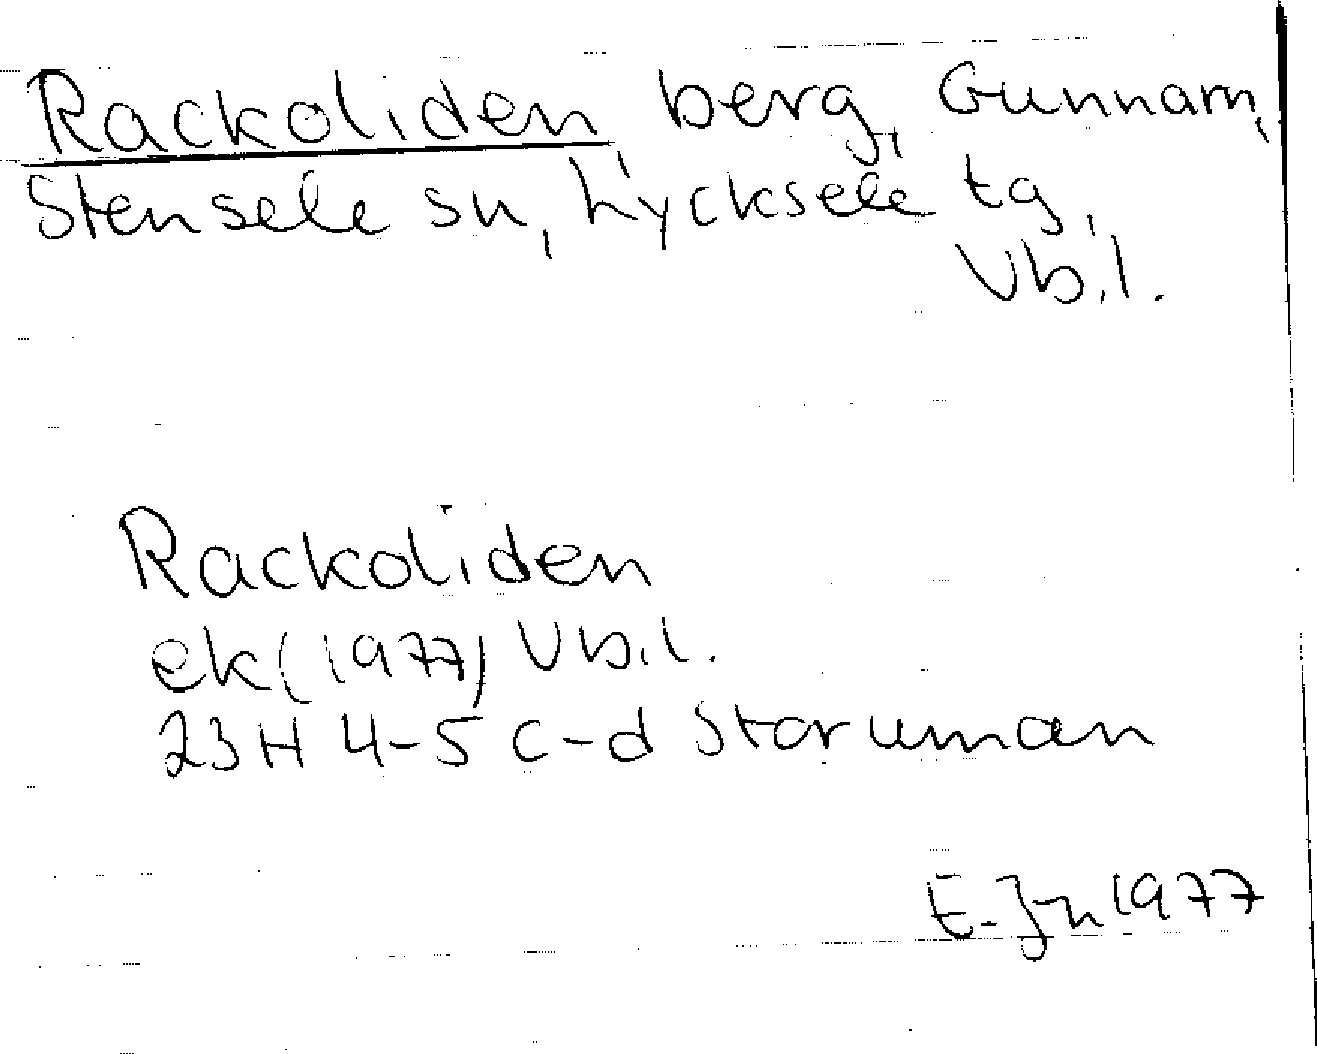 Rackoliden berg, Gunnarn,
Stensele sn, Lycksele tg,
Vb.l.
Rackoliden
ek (1977) Vb.l.
23H 4-5 c-d Storuman
E-Jn 1977